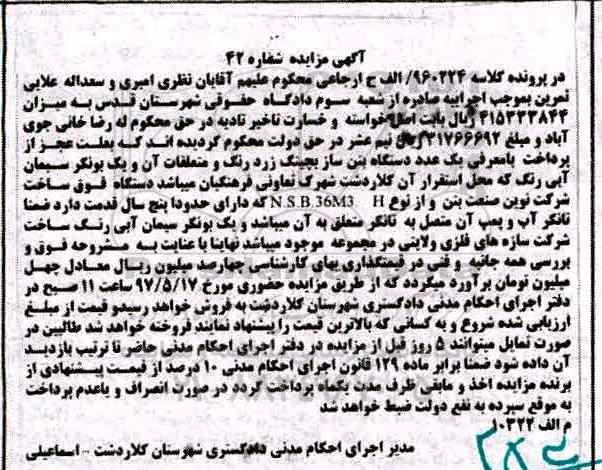 آگهی مزایده شماره ۴۲
در پرونده کلاسه ۹۶۰۲۲۴/ الف ح ارجاعی محکوم علیهم آقایان نظری امیری و سعداله علایی
ثمرین بموجب اجراییه صادره از شعبه سوم دادگاه حقوقی شهرستان قدس به میزان
۴۱۵۳۳۳۸۴۴ ریال بابت اصل خواسته و خسارت تاخیر تادیه در حق محکوم له رضا خانی جوی
آباد و مبلغ ۲۱۷۶۶۶۹۲ ریال نیم عشر در حق دولت محکوم گردیده اند که بعلت عجز از
پرداخت بامعرفی یک عدد دستگاه بتن ساز بچینگ زرد رنگ و متعلقات آن و یک بونکر سیمان
آبی رنگ که محل استقرار آن کلاردشت شهرک تعاونی فرهنگیان میباشد دستگاه فوق ساخت
شرکت نوین صنعت بتن و از نوع N.S.B.36M3 H که دارای حدودا پنج سال قدمت دارد ضمنا
تانکر آب و پمپ آن متصل به تانکر متعلق به آن میباشد و یک بونکر سیمان آبی رنگ ساخت
شرکت سازه های فلزی ولایتی در مجموعه موجود میباشد نهایتا با عنایت به مشروحه فوق و
بررسی همه جانبه و فنی در قیمتگذاری بهای کارشناسی چهارصد میلیون ریال معادل چهل
میلیون تومان برآورد میگردد که از طریق مزایده حضوری مورخ ۹۷/۵/۱۷ ساعت ۱۱ صبح در
دفتر اجرای احکام مدنی دادگستری شهرستان کلاردشت به فروش خواهد رسیدو قیمت از مبلغ
ارزیابی شده شروع و به کسانی که بالاترین قیمت را پیشنهاد نمایند فروخته خواهد شد طالبین در
صورت تمایل میتوانند ۵ روز قبل از مزایده در دفتر اجرای احکام مدنی حاضر تا ترتیب بازدید
آن داده شود ضمنا برابر ماده ۱۲۹ قانون اجرای احکام مدنی ۱۰ درصد از قیمت پیشنهادی از
برنده مزایده اخذ و مابقی ظرف مدت یکماه پرداخت گردد در صورت انصراف و یاعدم پرداخت
به موقع سپرده به نفع دولت ضبط خواهد شد
م الف ۱۰۳۲۲
مدیر اجرای احکام مدنی دادگستری شهرستان کلاردشت - اسماعیلی